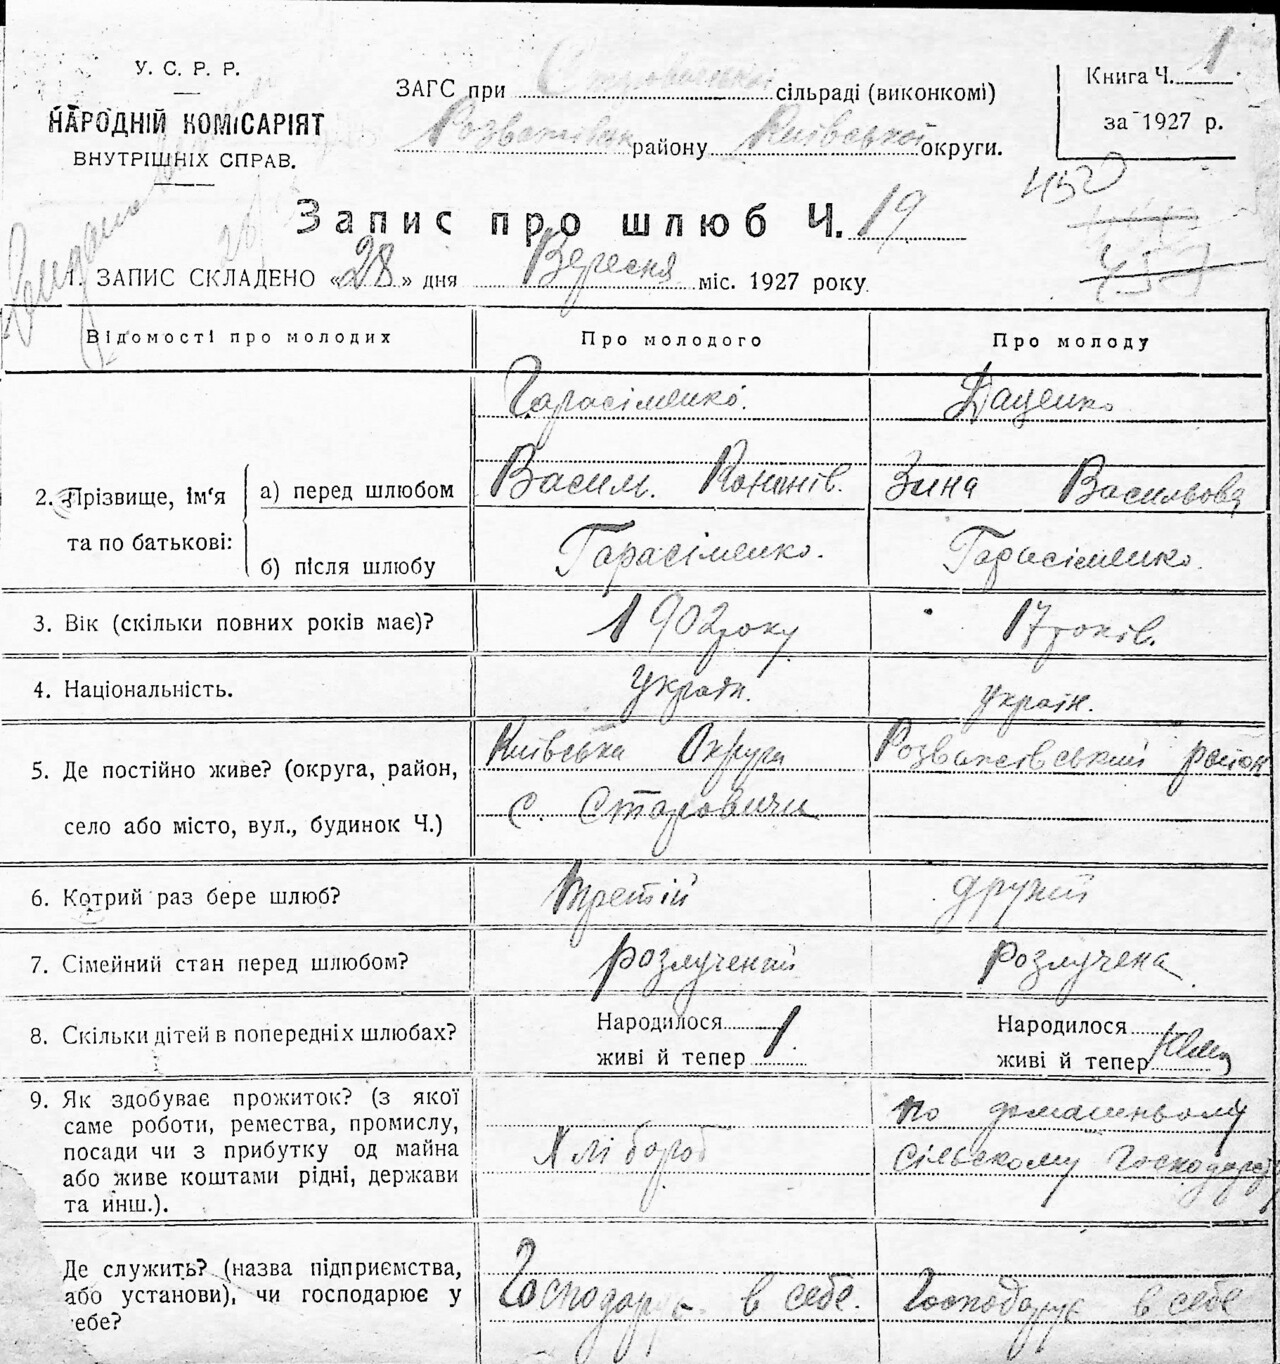 У. С. Р. Р.
НАРОДНІЙ КОМІСАРІЯТ
ВНУТРІШНІХ СПРАВ.
ЗАГС при сільраді (виконкомі)
Розважівськ району Київської округи.
Книга Ч. 1
за 1927 р.
452
Запис про шлюб Ч. 19
1. ЗАПИС СКЛАДЕНО «28» дня Вересня міс. 1927 року
Відомості про молодих
Про молодого
Про молоду
2. Прізвище, ім'я та по батькові:
а) перед шлюбом
Гарасіменко.
Василь. Кононів.
Даценко
Зина Васильова
б) після шлюбу
Гарасіменко.
Гарасіменко.
3. Вік (скільки повних років має)?
1902 року
17 років.
4. Національність.
Україн.
україн.
5. Де постійно живе? (округа, район,
село або місто, вул., будинок Ч.)
Київська Округа
с. Старовичи
Розважівський район
6. Котрий раз бере шлюб?
третій
другий
7. Сімейний стан перед шлюбом?
розлучений
розлучена
8. Скільки дітей в попередніх шлюбах?
Народилося
живі й тепер 1
Народилося
живі й тепер
9. Як здобуває прожиток? (з якої
саме роботи, ремества, промислу,
посади чи з прибутку од майна
або живе коштами рідні, держави
та инш.).
Хлібороб
по домашньому
сільскому господарст
Де служить? (назва підприємства,
або установи), чи господарює у
себе?
Господарує в себе.
Господарує в себе